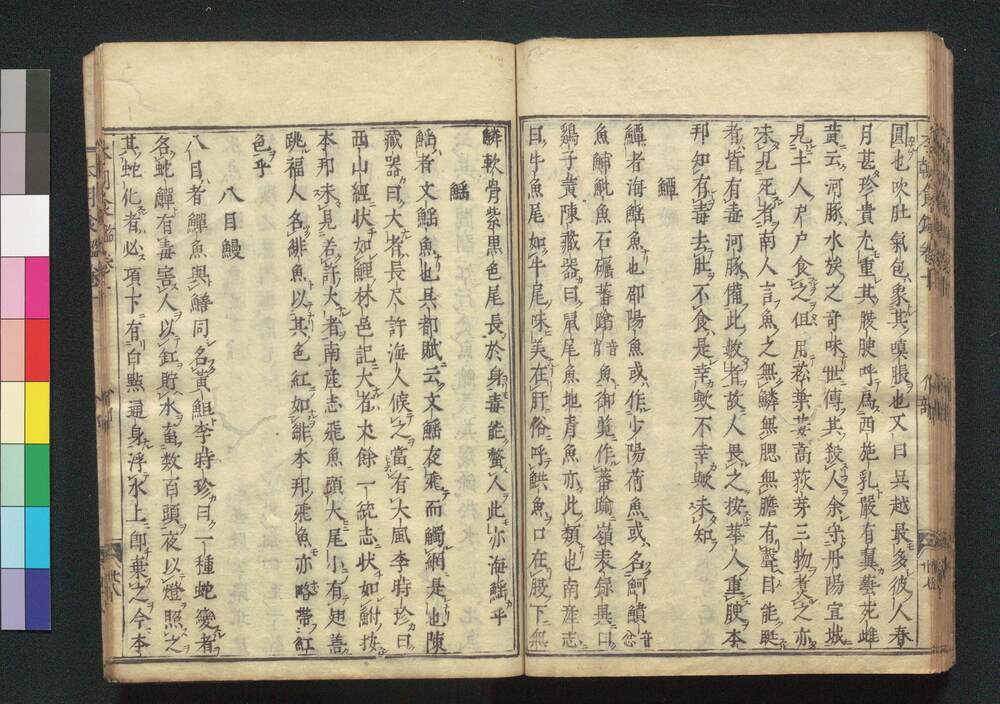 圓也吹肚氣包象其嗔脹也又曰吳越最多彼人春
月甚珍貴尤重其腴腴呼爲西施乳嚴有翼藝苑雌
黃云河豚水族之奇味世傳其殺人余守丹陽宣城
見土人户户食之但用菘菜蔞蒿荻芽三物煮之亦
未見死者南人言魚之無鱗無腮無膽有聲目能眨
者皆有毒河豚備此數者故人畏之按華人重腴本
邦知有毒去肚不食是幸歟不幸歟未知

鱝者海鷂魚也邵陽魚或作少陽荷魚或名魟鱝音忿
魚鯆魮魚石礪蕃踰音魚御覽作蕃踰嶺表録異曰
鷄子黃陳藏器曰鼠尾魚地青魚亦此類也南産志
曰牛魚尾如牛尾味美在肝俗呼鉷魚口在腹下無
鱗軟骨紫黑色尾長於身毒能螫人此亦海鷂乎
鰩
鰩者文鰩魚也吳都賦云文鰩夜飛而觸網是也陳
藏器曰大者長尺許海人候之當有大風李時珍曰
西山經状如鯉林邑記大者丈餘一統志状如鮒按
本邦未見若許大者南産志飛魚頭大尾小有翅善
跳福人名緋魚以其色紅如緋本邦飛魚亦略帶紅
色乎
八目鰻
八目者鱓魚與鱔同名黃䱉李時珍曰一種蛇變者
名蛇鱓有毒害人以缸貯水畜数百頭夜以燈照之
其蛇化者必項下有白點通身浮水上即棄之今本